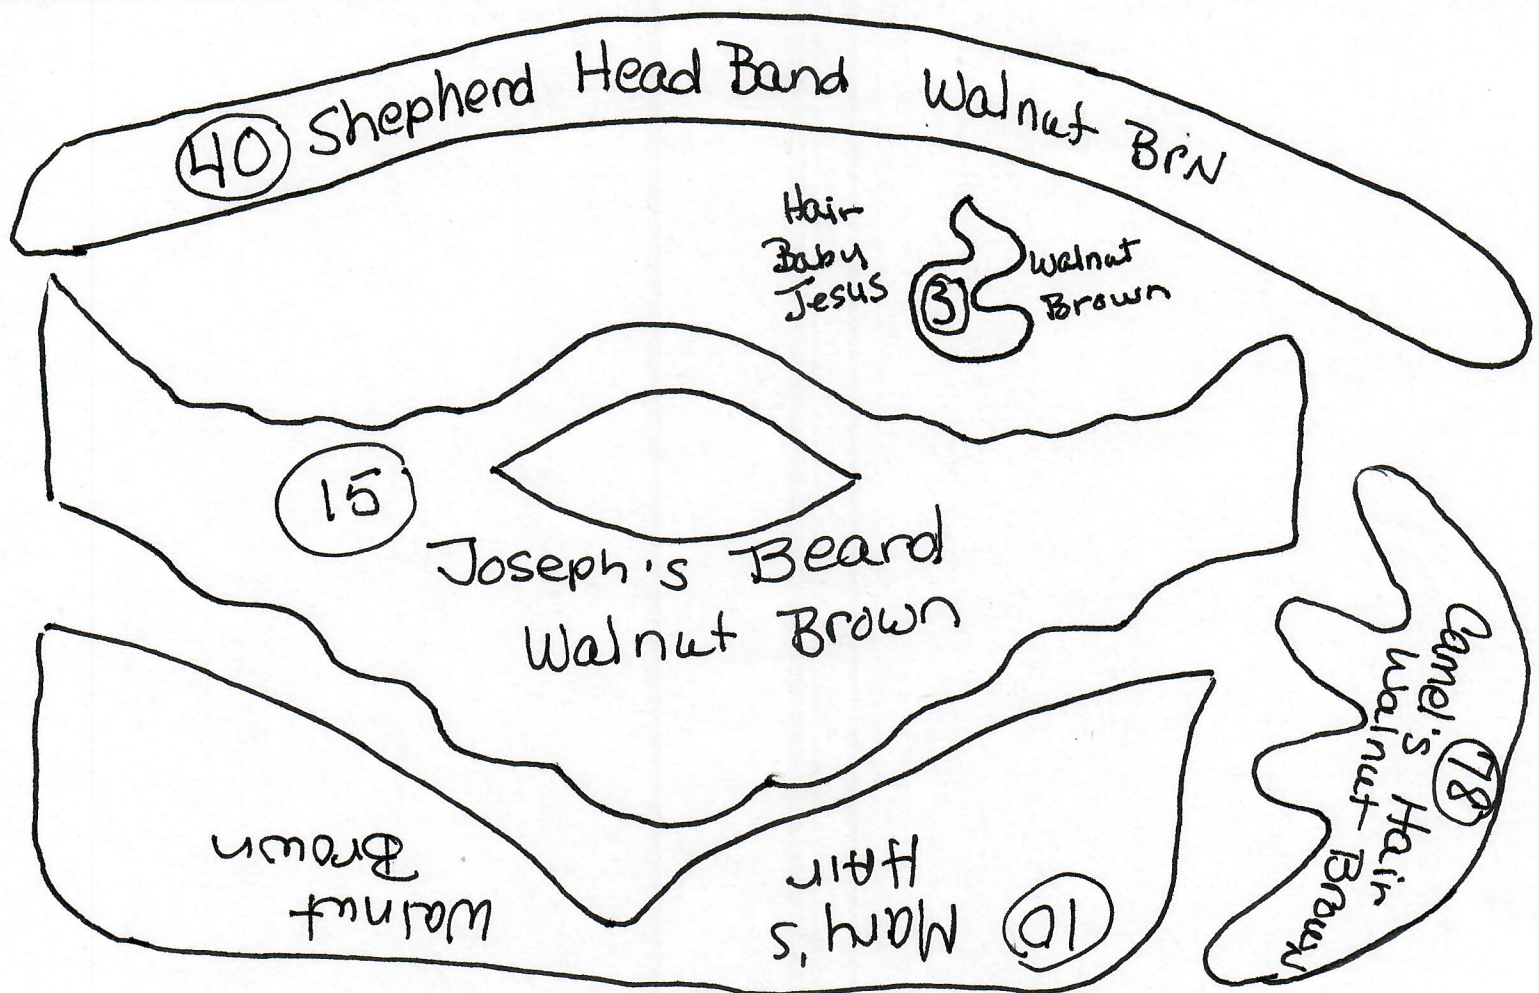 40 Shepherd Head Band Walnut Brn
Hair
Baby
Jesus
3
Walnut
Brown
15
Joseph's Beard
Walnut Brown
Camel's Hair
Walnut Brown
78
10
Mary's
HAir
Walnut
Brown